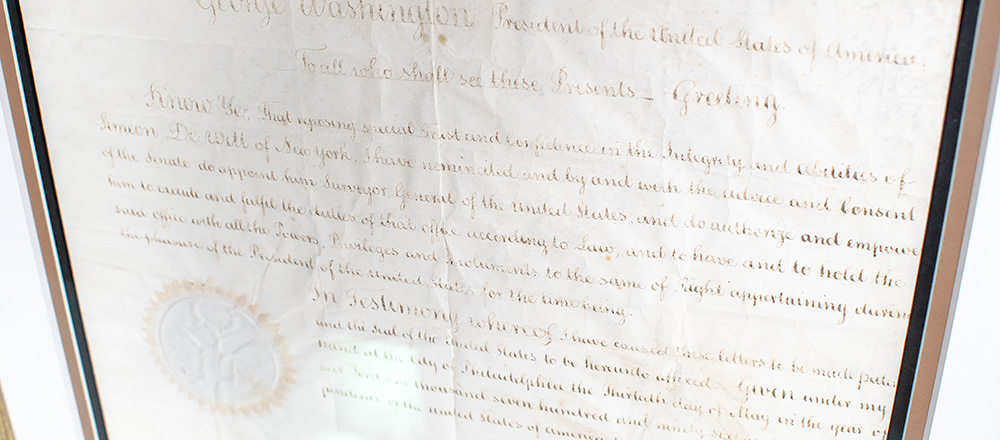 George Washington President of the United States of America.
To all who shall see these Presents — Greeting.
Know Ye, That reposing special Trust and Confidence in the Integrity and abilities of
Simeon De Witt of New York, I have nominated and by and with the advice and Consent
of the Senate do appoint him Surveyor General of the United States, and do authorize and empower
him to execute and fulfil the duties of that office according to Law, and to have and to hold the
said office with all the Powers, Privileges and Emoluments to the same of Right appertaining during
the pleasure of the President of the United States for the time being.
In Testimony whereof I have caused these Letters to be made patent
and the Seal of the United States to be hereunto affixed. Given under my
Hand at the City of Philadelphia the Thirtieth day of May in the year of
our Lord one thousand seven hundred and ninety six
pendence of the United States of America